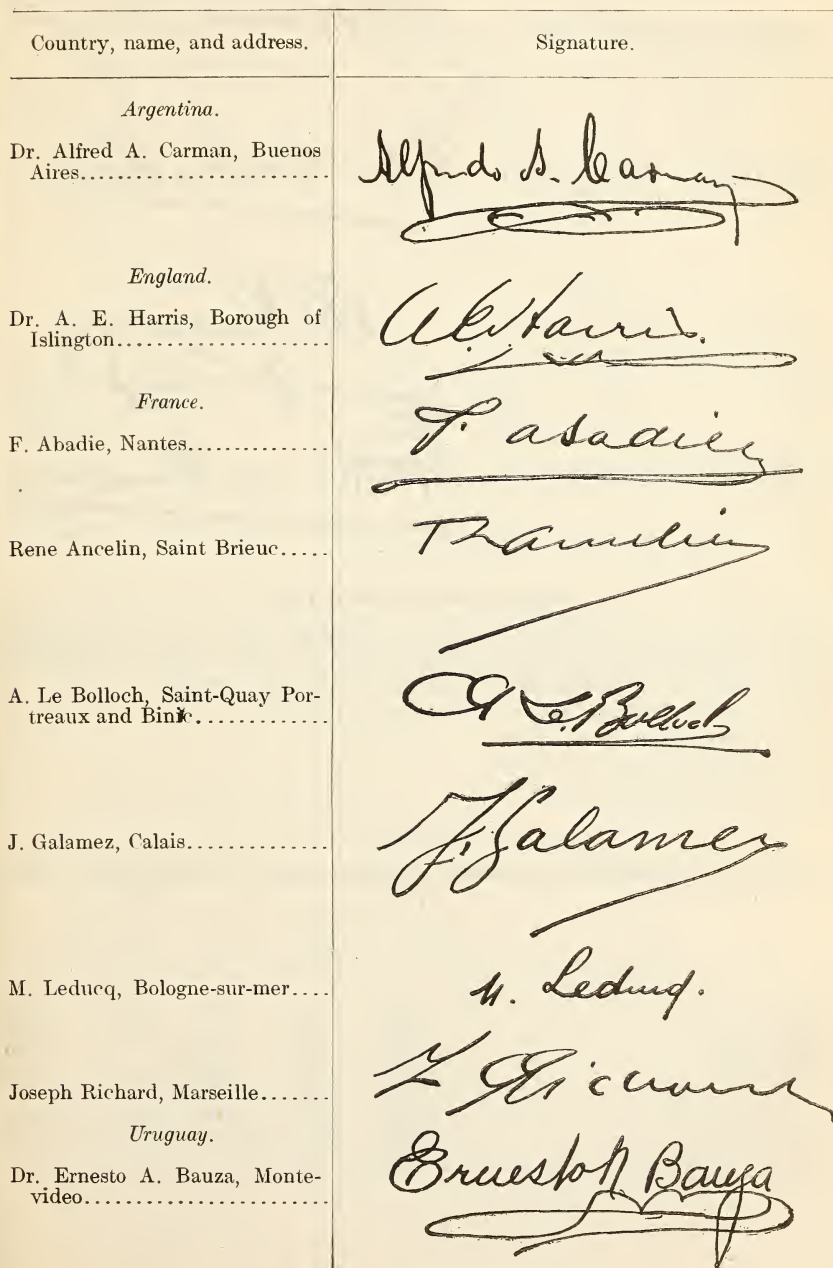 Country, name, and address. Signature.
Argentina.
Dr. Alfred A. Carman, Buenos
Aires........................ Alfredo A. Carman
England.
Dr. A. E. Harris, Borough of
Islington..................... A E Harris.
France.
F. Abadie, Nantes.............. F. abadie
Rene Ancelin, Saint Brieuc..... R Ancelin
A. Le Bolloch, Saint-Quay Por-
treaux and Binic............. A Le Bolloch
J. Galamez, Calais.............. J. Galamez
M. Leducq, Bologne-sur-mer.... M. Leducq.
Joseph Richard, Marseille....... J Richard
Uruguay.
Dr. Ernesto A. Bauza, Monte-
video........................ Ernesto A Bauza